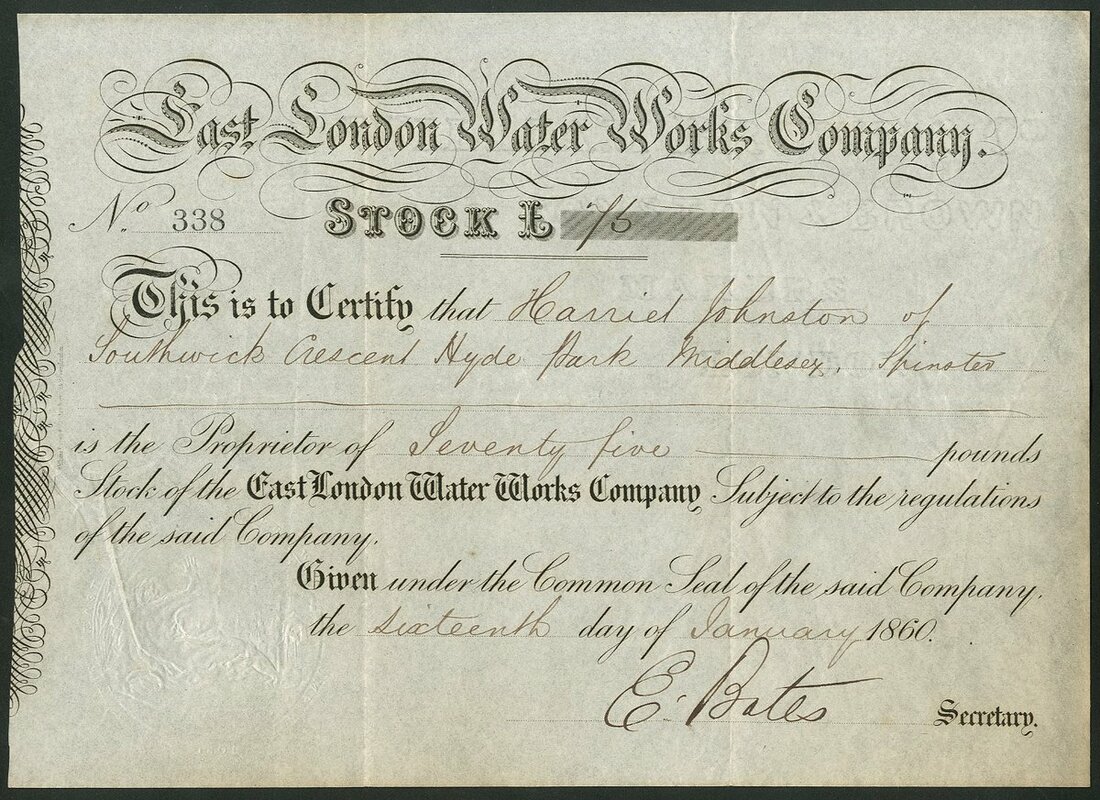 East London Water Works Company.
No. 338 STOCK £ 75
This is to Certify that Harriet Johnston of
Southwick Crescent Hyde Park Middlesex, Spinster
is the Proprietor of Seventy five pounds
Stock of the East London Water Works Company Subject to the regulations
of the said Company.
Given under the Common Seal of the said Company,
the sixteenth day of January 1860.
E. Bates Secretary.